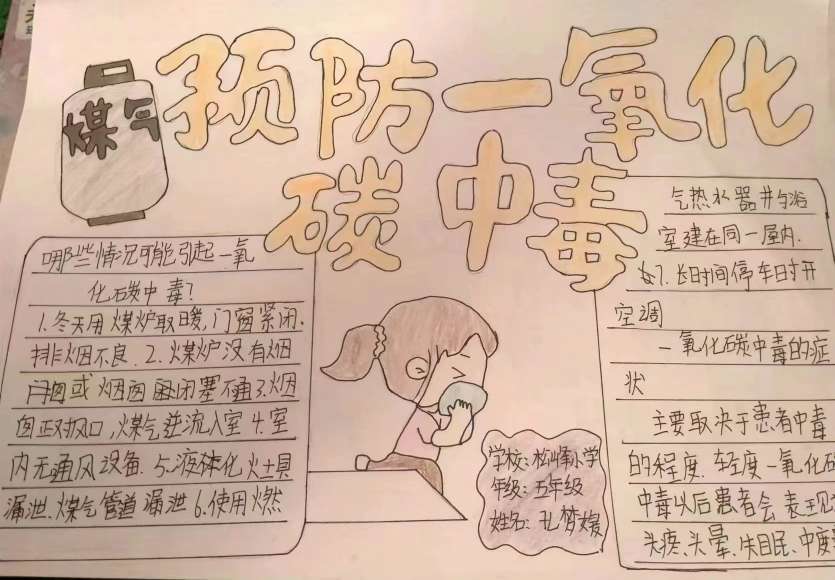 煤气
预防一氧化
碳中毒
哪些情况可能引起一氧
化碳中毒?
1.冬天用煤炉取暖,门窗紧闭.
排烟不良.2.煤炉没有烟
囱或烟囱闭塞不通3.烟
囱正对风口,煤气逆流入室4.室
内无通风设备.5.液体化灶具
漏泄.煤气管道漏泄6.使用燃
气热水器并与浴
室建在同一屋内.
7.长时间停车时开
空调
一氧化碳中毒的症
状
主要取决于患者中毒
的程度.轻度一氧化碳
中毒以后患者会表现
头疼、头晕、失眠、中度
学校:松峰小学
年级:五年级
姓名:孔梦媛